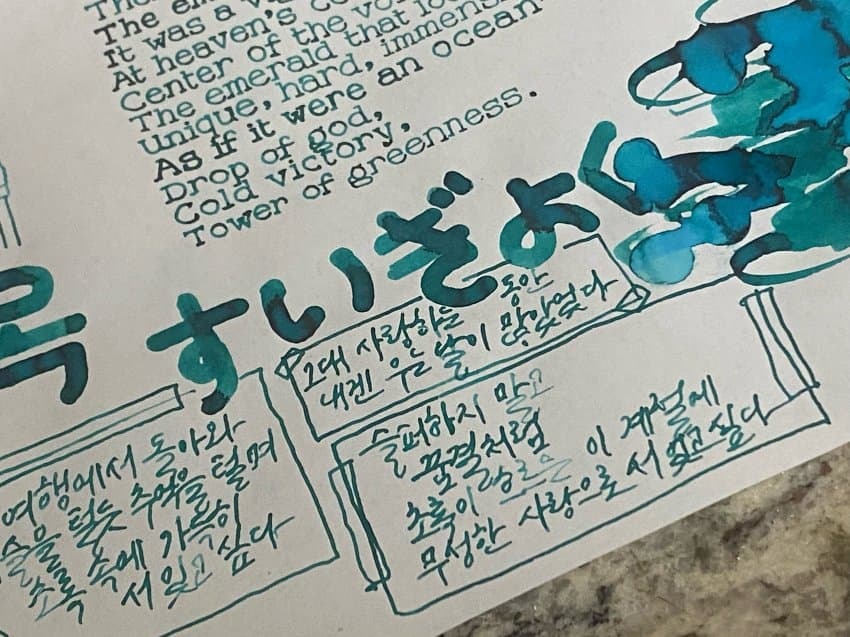 The em
It was a v
At heaven's ce
Center of the vo
The emerald that lo
Unique, hard, immens
As if it were an ocean
Drop of god,
Cold victory,
Tower of greenness.
옥 すいぎょく
그대 사랑하는 동안
내겐 우는 날이 많았었다
슬퍼하지 말고
꿈결처럼
초록이 흐르는 이 계절에
무성한 사랑으로 서 있고 싶다
여행에서 돌아와
이슬을 털듯 추억을 털며
초록 속에 가득히
서 있고 싶다